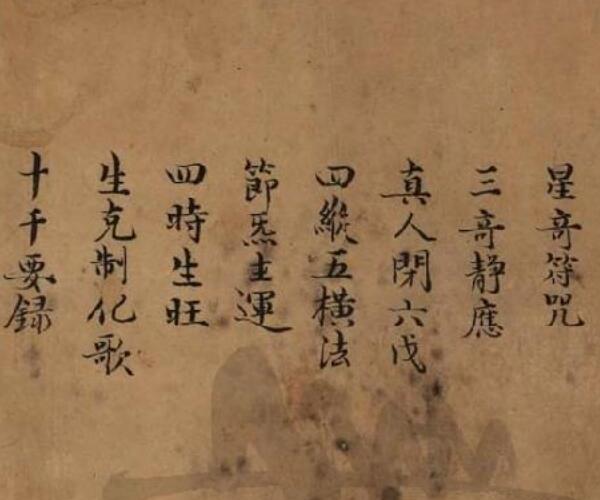 星竒符咒
三竒静應
真人閉六戊
四縱五橫法
節炁主運
四時生旺
生克制化歌
十干要録